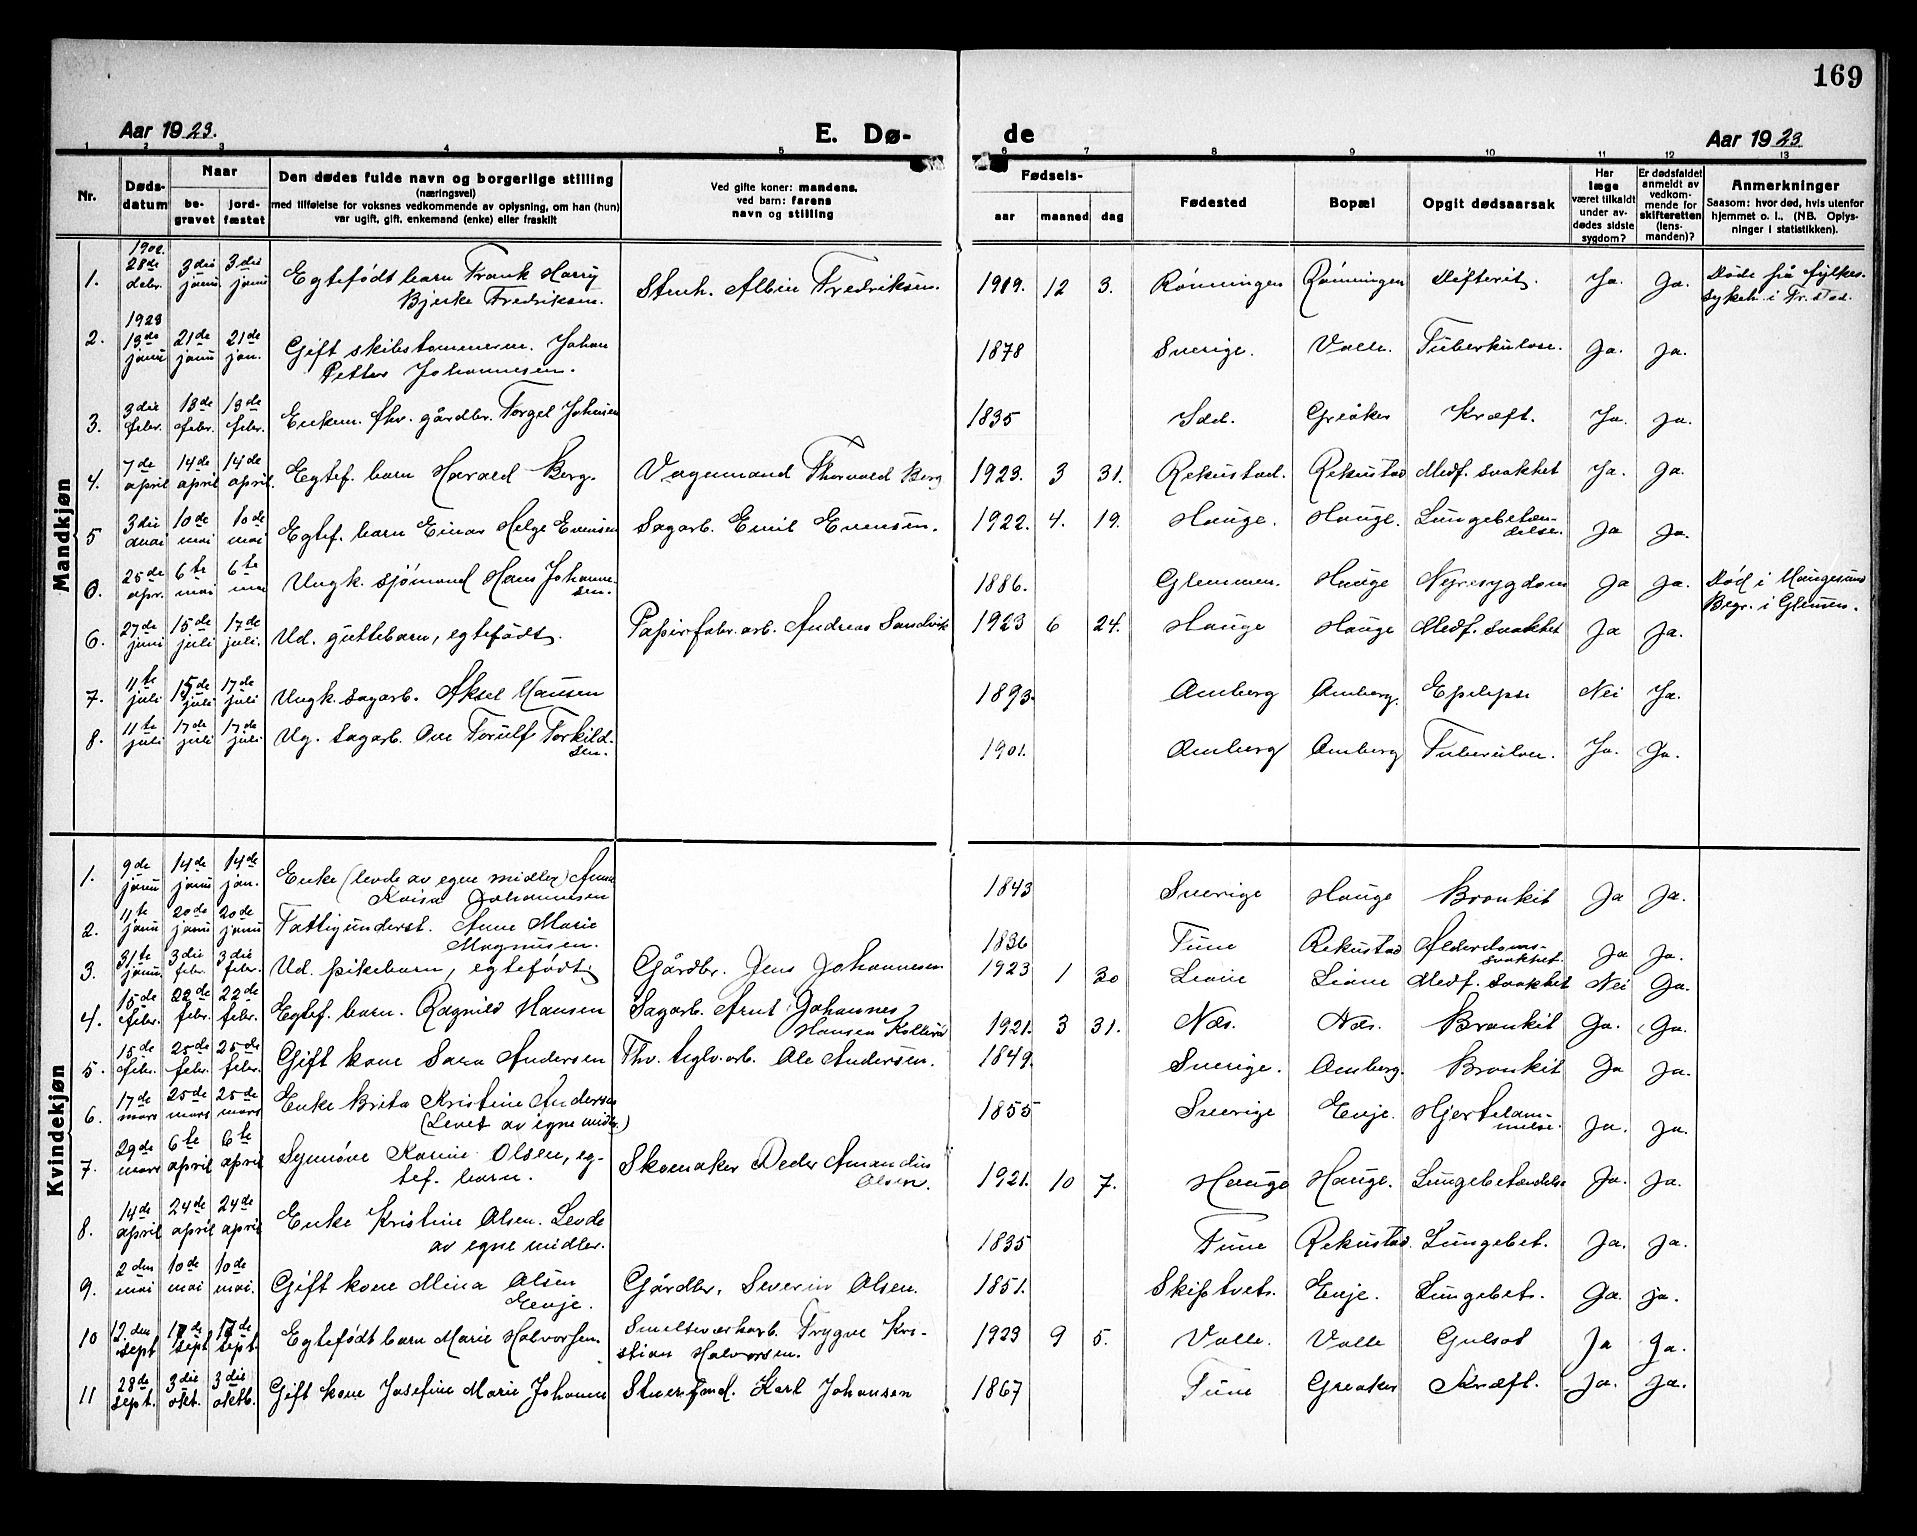 169
Aar 1923.
E. Dø-
de
Aar 1923
1 2 3 4 5 6 7 8 9 10 11 12 13
Nr.
Døds-
datum
Naar
be-
gravet
jord-
fæstet
Den dødes fulde navn og borgerlige stilling
(næringsvei)
med tilføielse for voksnes vedkommende av oplysning, om han (hun)
var ugift, gift, enkemand (enke) eller fraskilt
Ved gifte koner: mandens.
ved barn: farens
navn og stilling
Fødsels-
aar maaned dag
Fødested
Bopæl
Opgit dødsaarsak
Har
læge
været tilkaldt
under av-
dødes sidste
sygdom?
Er dødsfaldet
anmeldt av
vedkom-
mende for
skifteretten
(lens-
manden)?
Anmerkninger
Saasom: hvor død, hvis utenfor
hjemmet o. l.. (NB. Oplys-
ninger i statistikken).
Mandkjøn
1. 28de debr. 3die janu. 3die janu Egtefødt barn Frank Harry
Bjerke Fredriksen. Stenh. Albin Fredriksen. 1919. 12 3. Rønningen Rønningen Difterit. Ja. Ja. Døde på fylkes-
sykeh. i Fr.stad.
1923
2. 13de janu 21de janu 21de jan. Gift skibstømmerm. Johan
Petter Johannesen. 1878 Sverige. Valle. Tuberkulose. Ja. Ja.
3. 3die febr. 13de febr. 13de febr. Enkem. fhv. gårdbr. Torgel Johnsen 1835 Idd. Greåker Kræft. Ja. Ja.
4. 7de april 14de april 14de april. Egtef. barn Harald Berg. Vognmand Thorvald Berg 1923. 3 31. Rekustad. Rekustad Medf. svakhet Ja. Ja.
5 3die mai 10de mai 10de mai Egtef. barn Einar Helge Evensen Sagarb. Emil Evensen. 1922. 4. 19. Hauge. Hauge. Lungebetæn-
delse. Ja Ja.
6. 25de apr. 6te mai 6te mai Ungk. sjømand Hans Johanne-
sen. 1886. Glemmen. Hauge Nyresygdom Ja Ja. Død i Haugesund
Begr. i Glemen.
6. 27de juni 15de juli 17de juli. Ud. guttebarn, egtefødt. Papirfabr. arb. Andreas Sandvik 1923 6 24. Hauge Hauge Medf. svakhet Ja Ja.
7. 11te juli 15de juli 17de juli Ungk. sagarb. Aksel Hansen 1893. Amberg Amberg. Epilepsi Nei Ja.
8. 11te juli 17de juli 17de juli Ug. sagarb. Ove Torulf Torkild-
sen. 1901. Amberg Amberg Ja. Ja.
Kvindekjøn
1. 9de janu 14de janu 14de jan. Enke (levde av egne midler) Anna
Kaisa Johannesen 1843 Sverige Hauge Bronkit Ja Ja.
2. 11te janu 20de janu 20de janu Fattigunderst. Anne Marie
Magnusen. 1836 Tune Rekustad Alderdoms-
svakhet. Ja Ja.
3. 31te janu. 3die febr. 3die febr. Ud. pikebarn, egtefødt Gårdbr. Jens Johannesen 1923 1 30 Leine Leine Medf. svakhet Nei Ja.
4. 15de febr. 22de febr. 22de febr. Egtef. barn. Ragnild Hansen Sagarb. Arnt Johannes
Hansen 1921. 3 31. Næs. Næs. Bronkit Ja. Ja.
5. 15de febr. 25de febr. 25de febr. Gift kone Sara Andersen Fhv. teglv.arb. Ole Andersen. 1849. Sverige. Amberg. Bronkit Ja Ja.
6. 17de mars 25de mars 25de mars Enke Brita Kristine Andersen
(Levet av egne midler) 1855 Sverige Evje. Hjertelam-
melse. Ja. Ja.
7. 29de mars 6te april 6te april Synnøve Karine Olsen, eg-
tef. barn. Skomaker Peder Amandus
Olsen. 1921. 10 7. Hauge Hauge. Lungebetændelse Ja. Ja.
8. 14de april 24de april 24de april Enke Kristine Olsen. Levde
av egne midler. 1835 Tune Rekustad. Lungebet. Ja. Ja.
9. 2den mai 10de mai 10de mai. Gift kone Mina Olsen
Evje. Gårdbr. Severin Olsen. 1851. Skiptvet. Evje. Lungebet. Ja. Ja.
10 12.den sept 17de sept 17de sept. Egtefødt barn Marie Halvorsen. Smelteverkarb. Trygve Kri-
stian Halvorsen. 1923 9 5. Valle. Valle Gulsot Ja Ja.
11 28de sept. 3die okt. 3die oktb. Gift kone Josefine Marie Johansen Karl Johansen 1867 Tune Greaker Kræft. Ja. Ja.